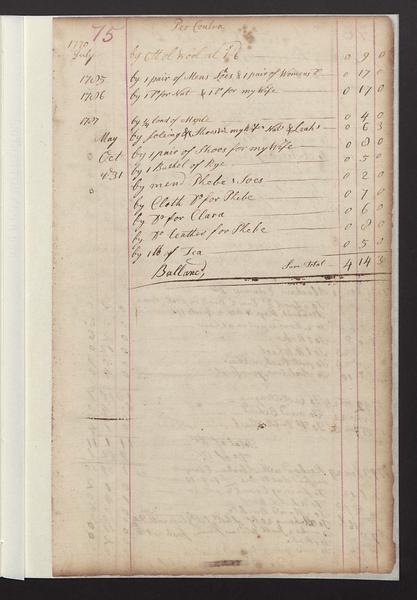 75 Per Contra
1770
July by Wool at 0 9 0
1785 by 1 pair of Mens & 1 pair of Womens Do 0 17 0
1786 by 1 Do for Nat & 1 Do for my Wife 0 17 0
1787 by load of 0 4 0
May by Soleing Shoes my Wife Nat & Leahs 0 6 3
Oct by 1 pair of Shoes for my Wife 0 8 0
by 1 Bushel of Rye 0 5 0
31 by mend Phebe Shoes 0 2 0
by Cloth Do for Phebe 0 7 0
by Do for Clara 0 6 0
by Do Leather for Phebe 0 8 0
by 1 lb of Tea 0 5 0
Ballanced Sum Total 4 14 3